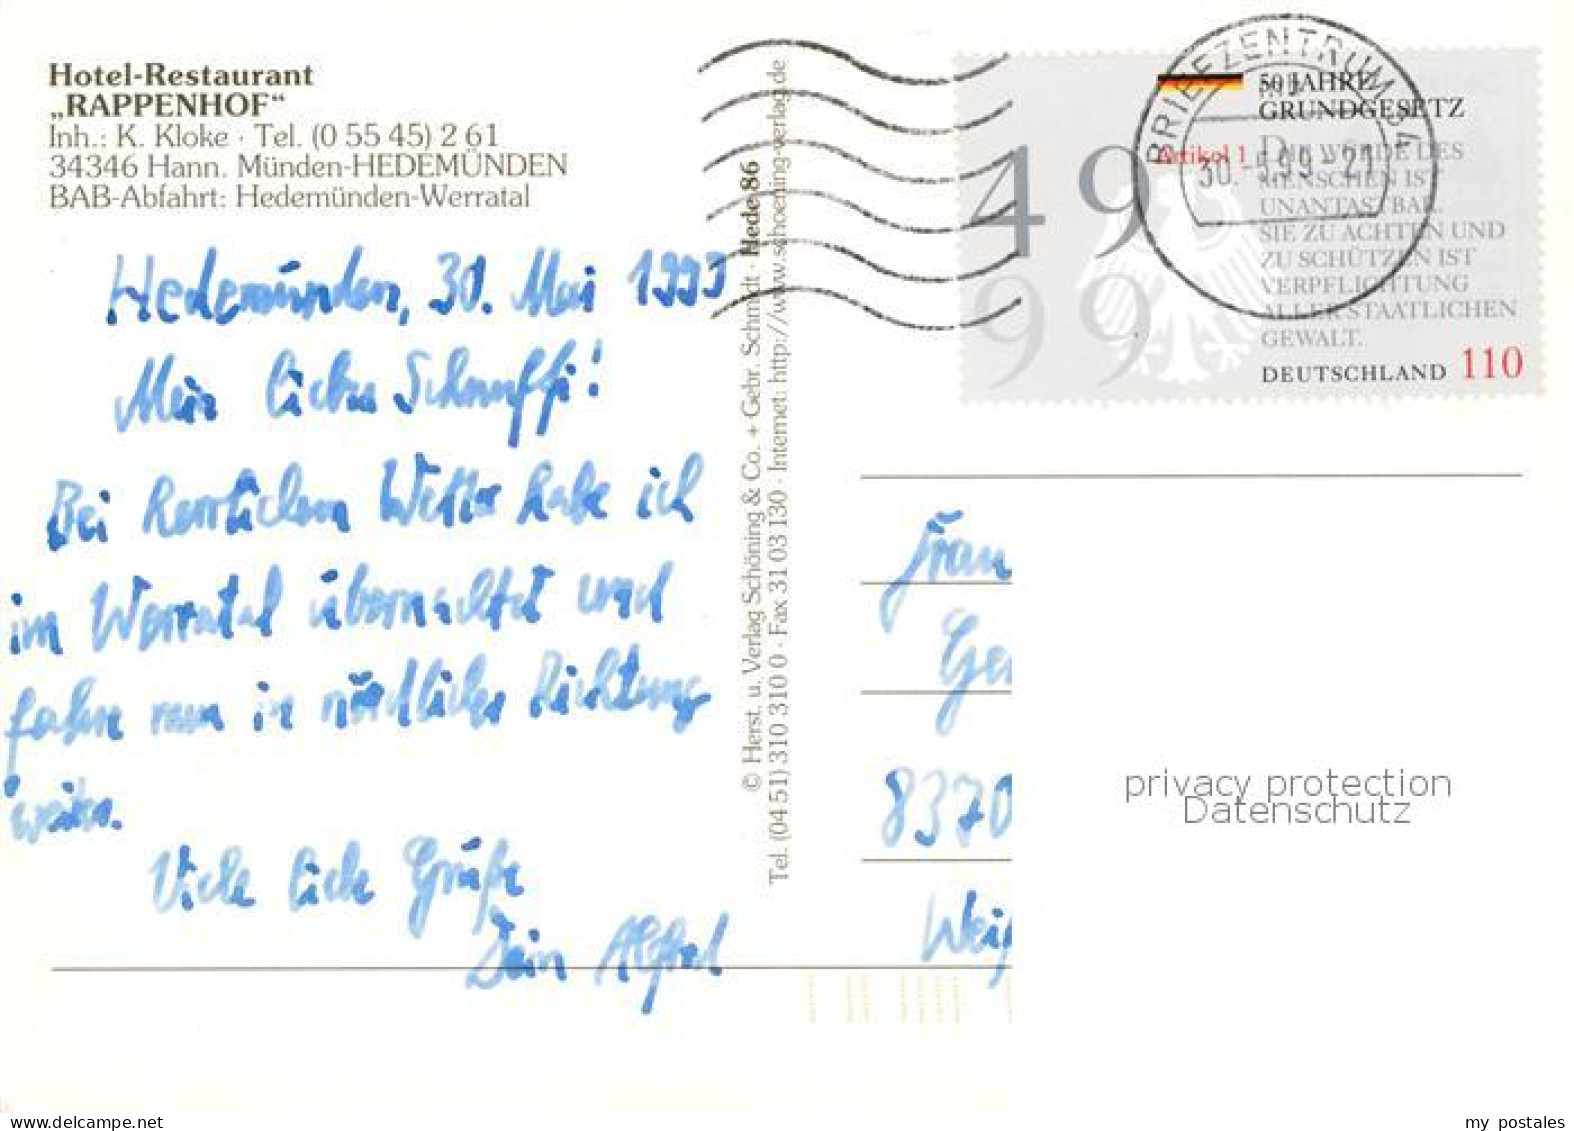 Hotel-Restaurant
„RAPPENHOF“
Inh.: K. Kloke · Tel. (0 55 45) 2 61
34346 Hann. Münden-HEDEMÜNDEN
BAB-Abfahrt: Hedemünden-Werratal
Hedemünden, 30. Mai 1999
Mein lieber Schnuffi!
Bei herrlichem Wetter habe ich
im Werratal übernachtet und
fahre nun in nördlicher Richtung
weiter.
Viele liebe Grüße
Dein Alfred
© Herst. u. Verlag Schöning & Co. + Gebr. Schmidt · Hede 86
Tel. (04 51) 310 310 0 · Fax 31 03 130 · Internet: http://www.schoening-verlag.de
BRIEFZENTRUM 34
30.-5.99-21
50 JAHRE
GRUNDGESETZ
Artikel 1
DIE WÜRDE DES
MENSCHEN IST
UNANTASTBAR.
SIE ZU ACHTEN UND
ZU SCHÜTZEN IST
VERPFLICHTUNG
ALLER STAATLICHEN
GEWALT.
DEUTSCHLAND 110
49
99
Frau
Ge
8370
Wei
privacy protection
Datenschutz
www.delcampe.net
my_postales